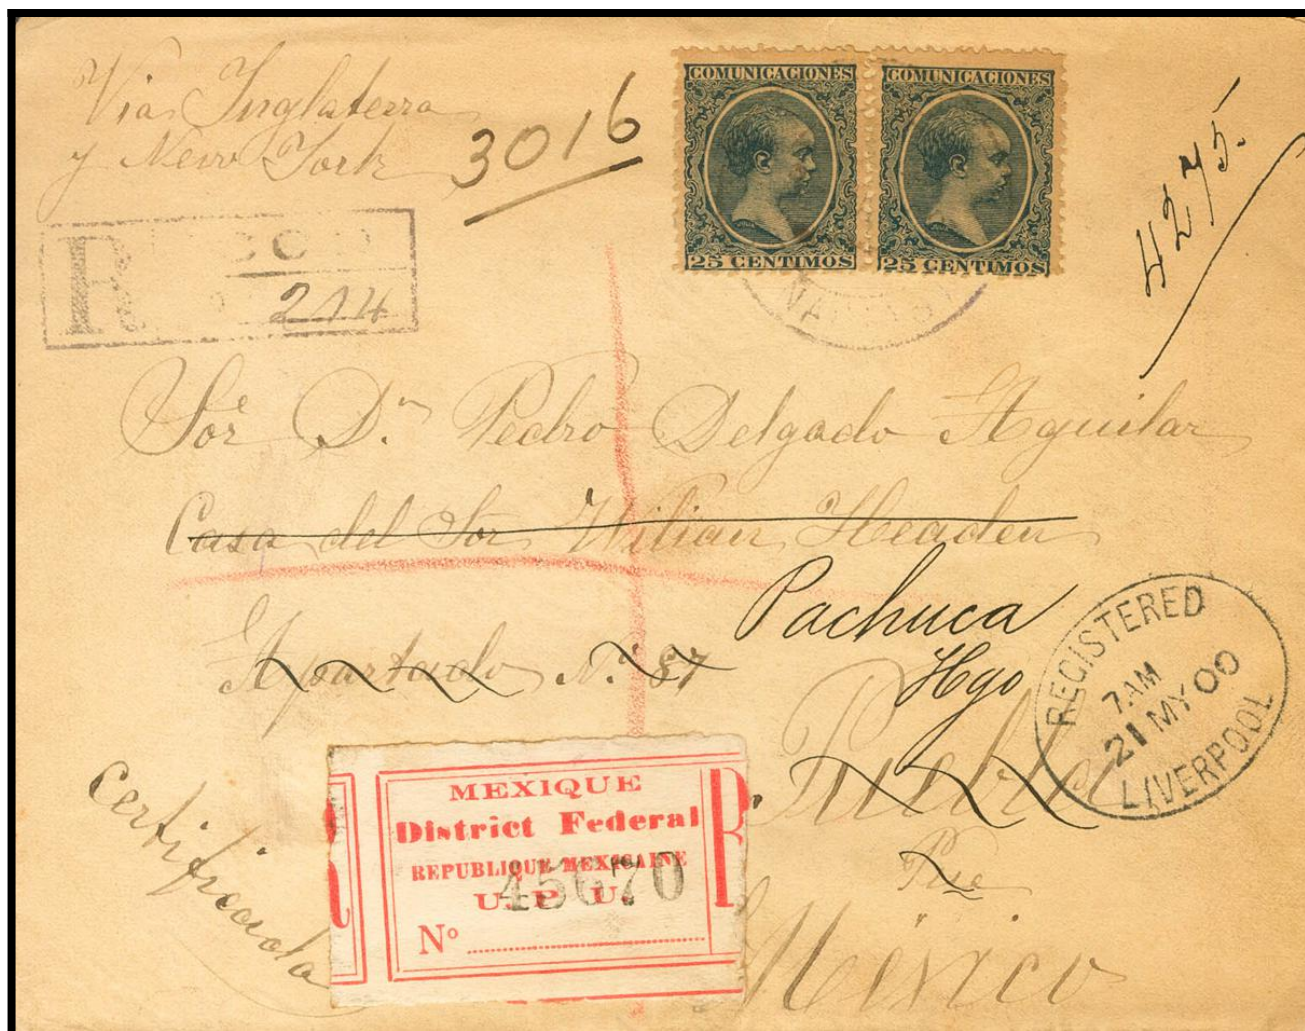 Via Inglaterra
y New York
3016
COMUNICACIONES
25 CENTIMOS
COMUNICACIONES
25 CENTIMOS
4275.
R
214
Sor Dn Pedro Delgado Aguilar
Casa del Sor Wilian Headen
Apartado No 87
Pachuca
Hgo
Puebla
Pue
México
REGISTERED
7.AM
21 MY 00
LIVERPOOL
Certificada
MEXIQUE
District Federal
REPUBLIQUE MEXICAINE
U.P.U.
45670
No
R